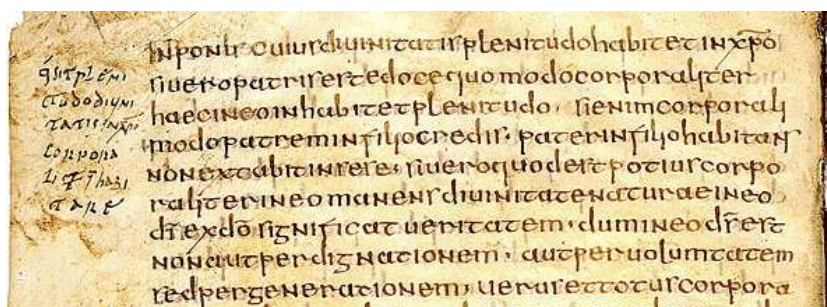 q̄ sit pleni
tudo diuini
tatis in xp̄i
corpora
lit̄ īhabi
tare
inponis cuius diuinitatis plenitudo habitet in xp̄o
si uero patris est edoce quomodo corporaliter
haec in eo inhabitet plenitudo · si enim corporali
modo patrem in filio credis · pater in filio habitans
non extabit in sese · si uero quod est potius corpo
raliter in eo manens diuinitate naturae in eo
dī ex dō significat ueritatem · dum in eo d̄s est
non aut per dignationem · aut per uolumtatem
sed per generationem · uerus et totus corpora